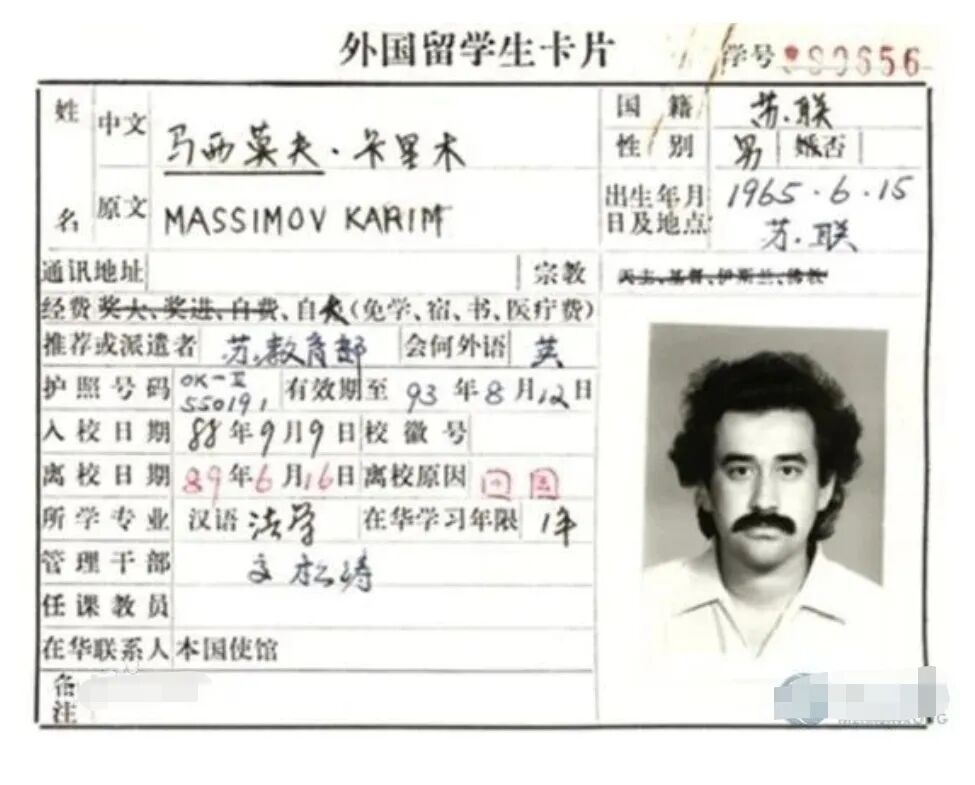 外国留学生卡片
学号 880656
姓名 中文 马西莫夫·卡里木
原文 MASSIMOV KARIM
国籍 苏联
性别 男 婚否
出生年月日及地点 1965·6·15 苏联
通讯地址
宗教 天主、基督、伊斯兰、佛教
经费 奖大、奖进、自费、自大(免学、宿、书、医疗费)
推荐或派遣者 苏教育部 会何外语 英
护照号码 OK-II 550191 有效期至 93年8月12日
入校日期 88年9月9日 校徽号
离校日期 89年6月16日 离校原因 回国
所学专业 汉语 法学 在华学习年限 1年
管理干部
任课教员
在华联系人 本国使馆
备注